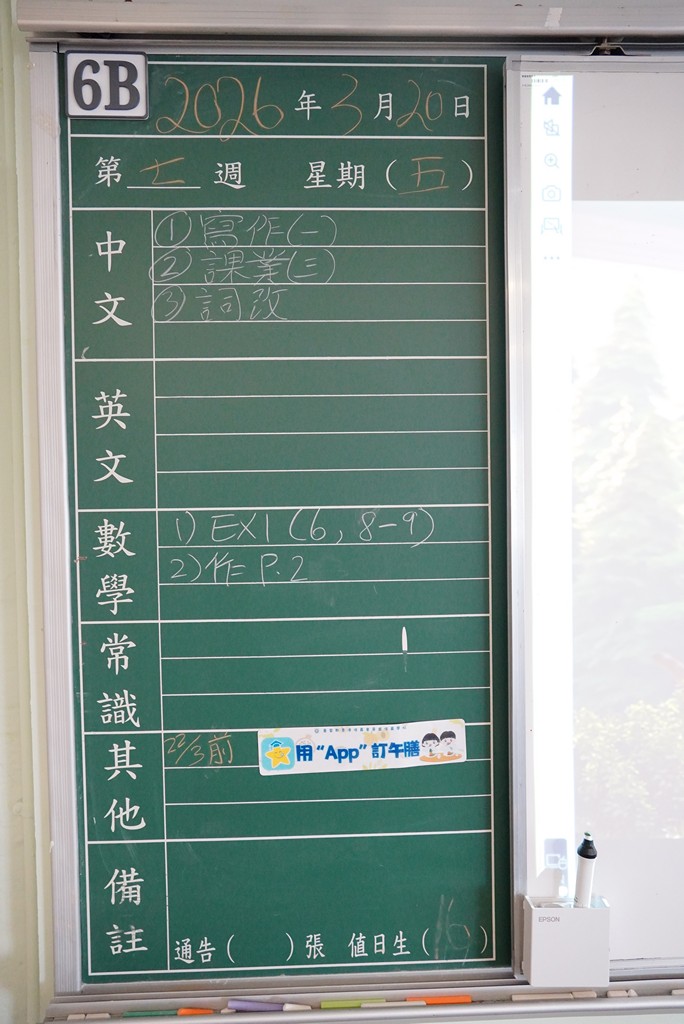 6B
2026年3月20日
第七週 星期(五)
中文
① 寫作(一)
② 課業(三)
③ 詞改
英文
數學
1) EX1 (6, 8-9)
2) 作 P.2
常識
其他
22/3前
用“App”訂午膳
備註
通告( )張 值日生(19)
EPSON